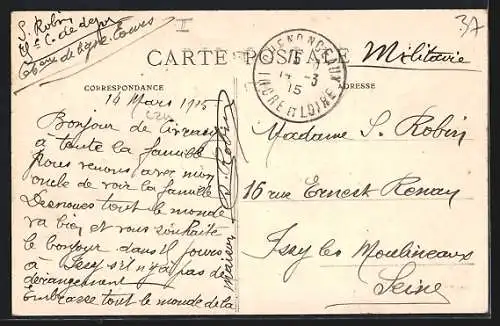 S. Robin
CARTE POSTALE
Militaire
CHENONCEAUX
14 - 3
15
INDRE ET LOIRE
CORRESPONDANCE
ADRESSE
14 Mars 1915
Bonjour de Civray
à toute la famille
Nous venons avec mon
oncle de voir la famille
Desnoues tout le monde
va bien et vous souhaite
le bonjour dans 8 jours
à Issy s'il n'y a pas de
dérangement
Embrasse tout le monde de la
maison S. Robin
Madame S. Robin
16 rue Ernest Renan
Issy les Moulineaux
Seine